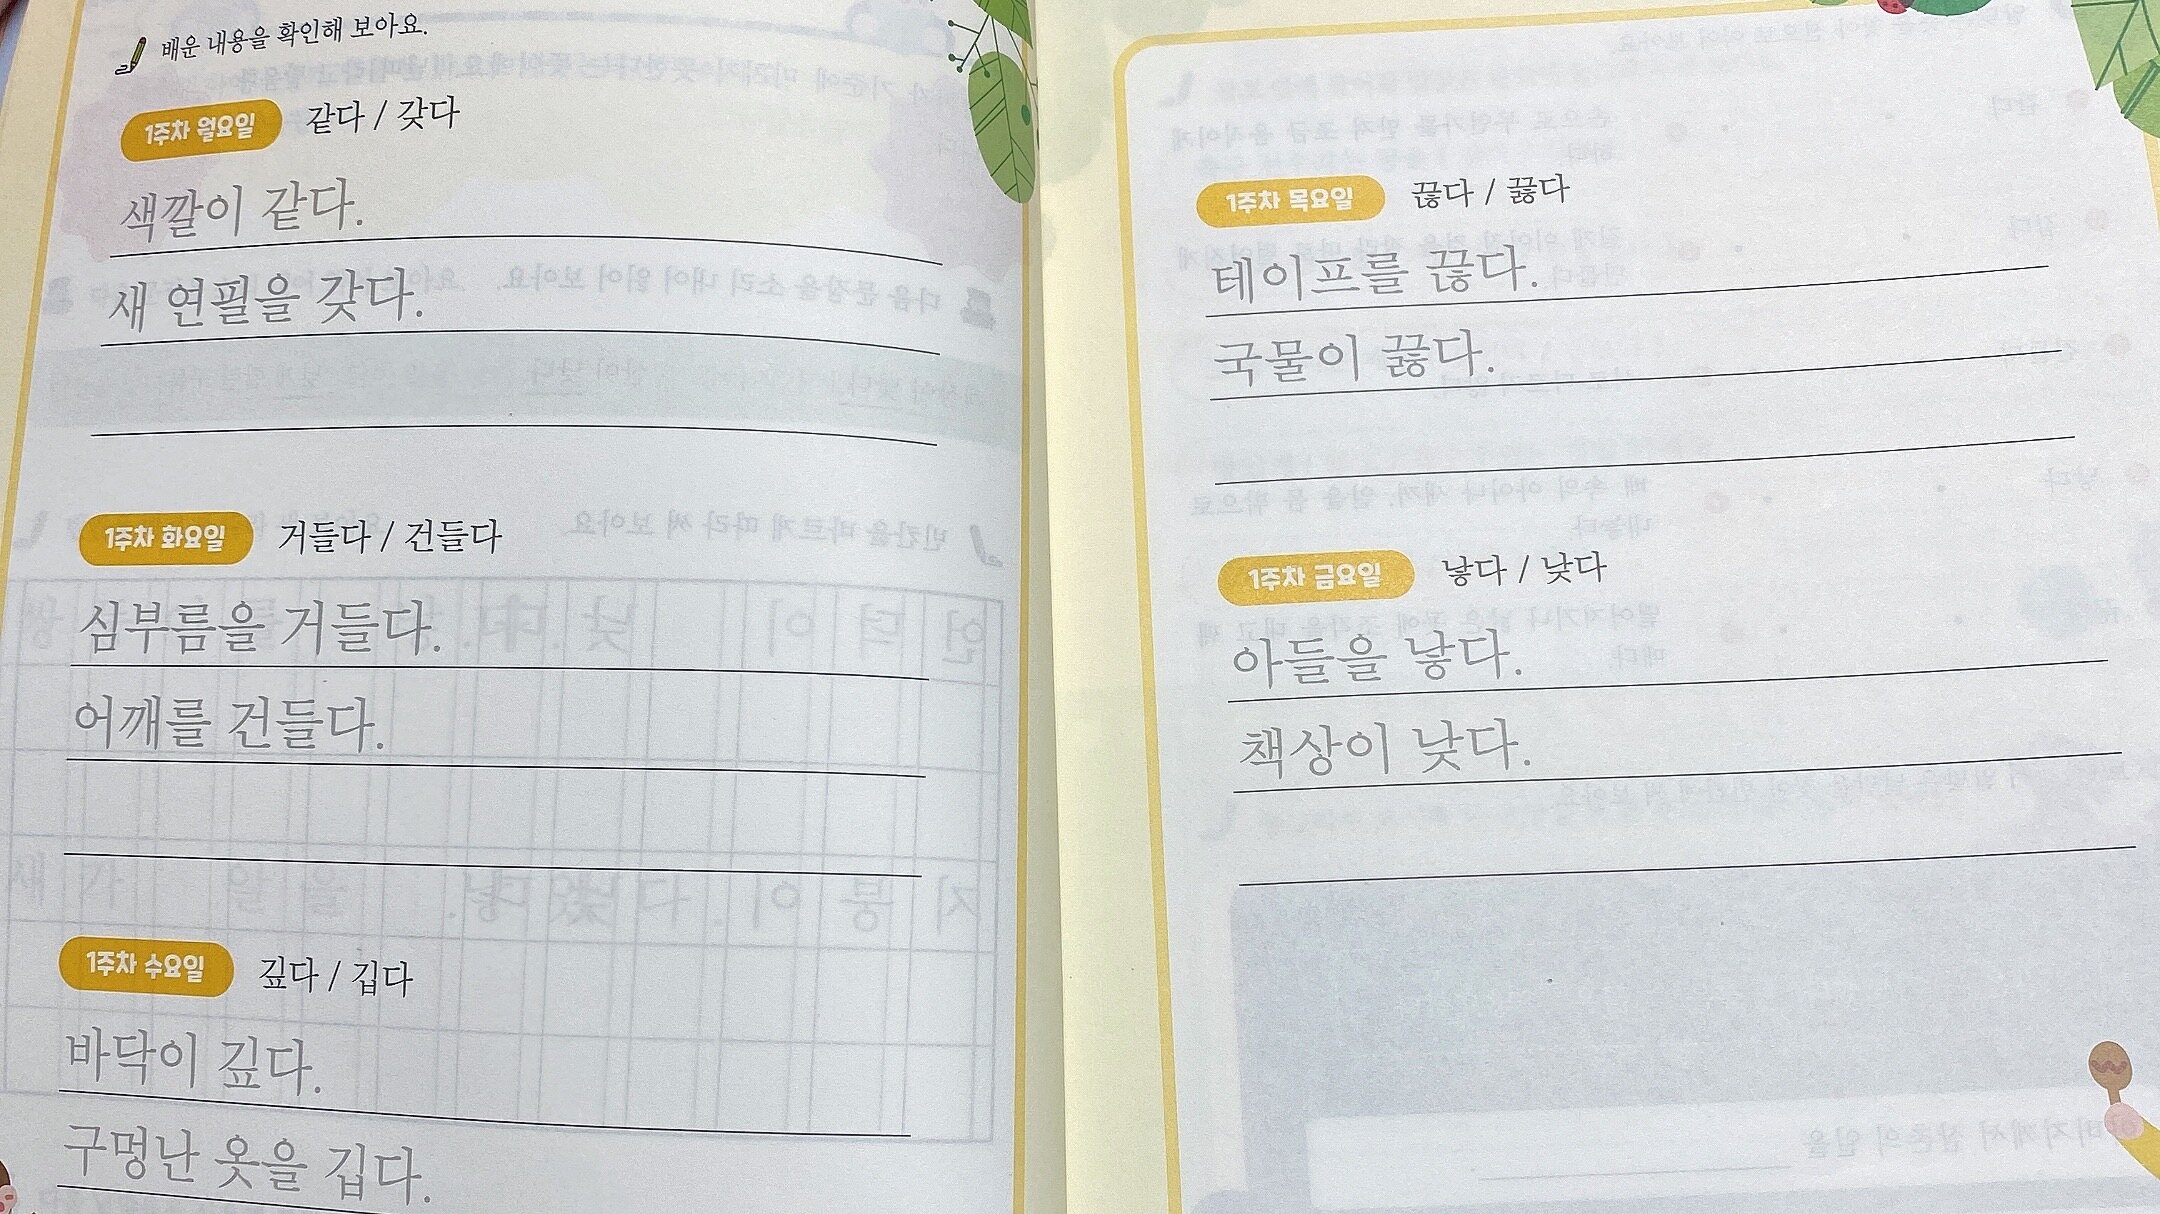 배운 내용을 확인해 보아요.
1주차 월요일 같다 / 갖다
색깔이 같다.
새 연필을 갖다.
1주차 화요일 거들다 / 건들다
심부름을 거들다.
어깨를 건들다.
1주차 수요일 깊다 / 깁다
바닥이 깊다.
구멍난 옷을 깁다.
1주차 목요일 끊다 / 끓다
테이프를 끊다.
국물이 끓다.
1주차 금요일 낳다 / 낮다
아들을 낳다.
책상이 낮다.